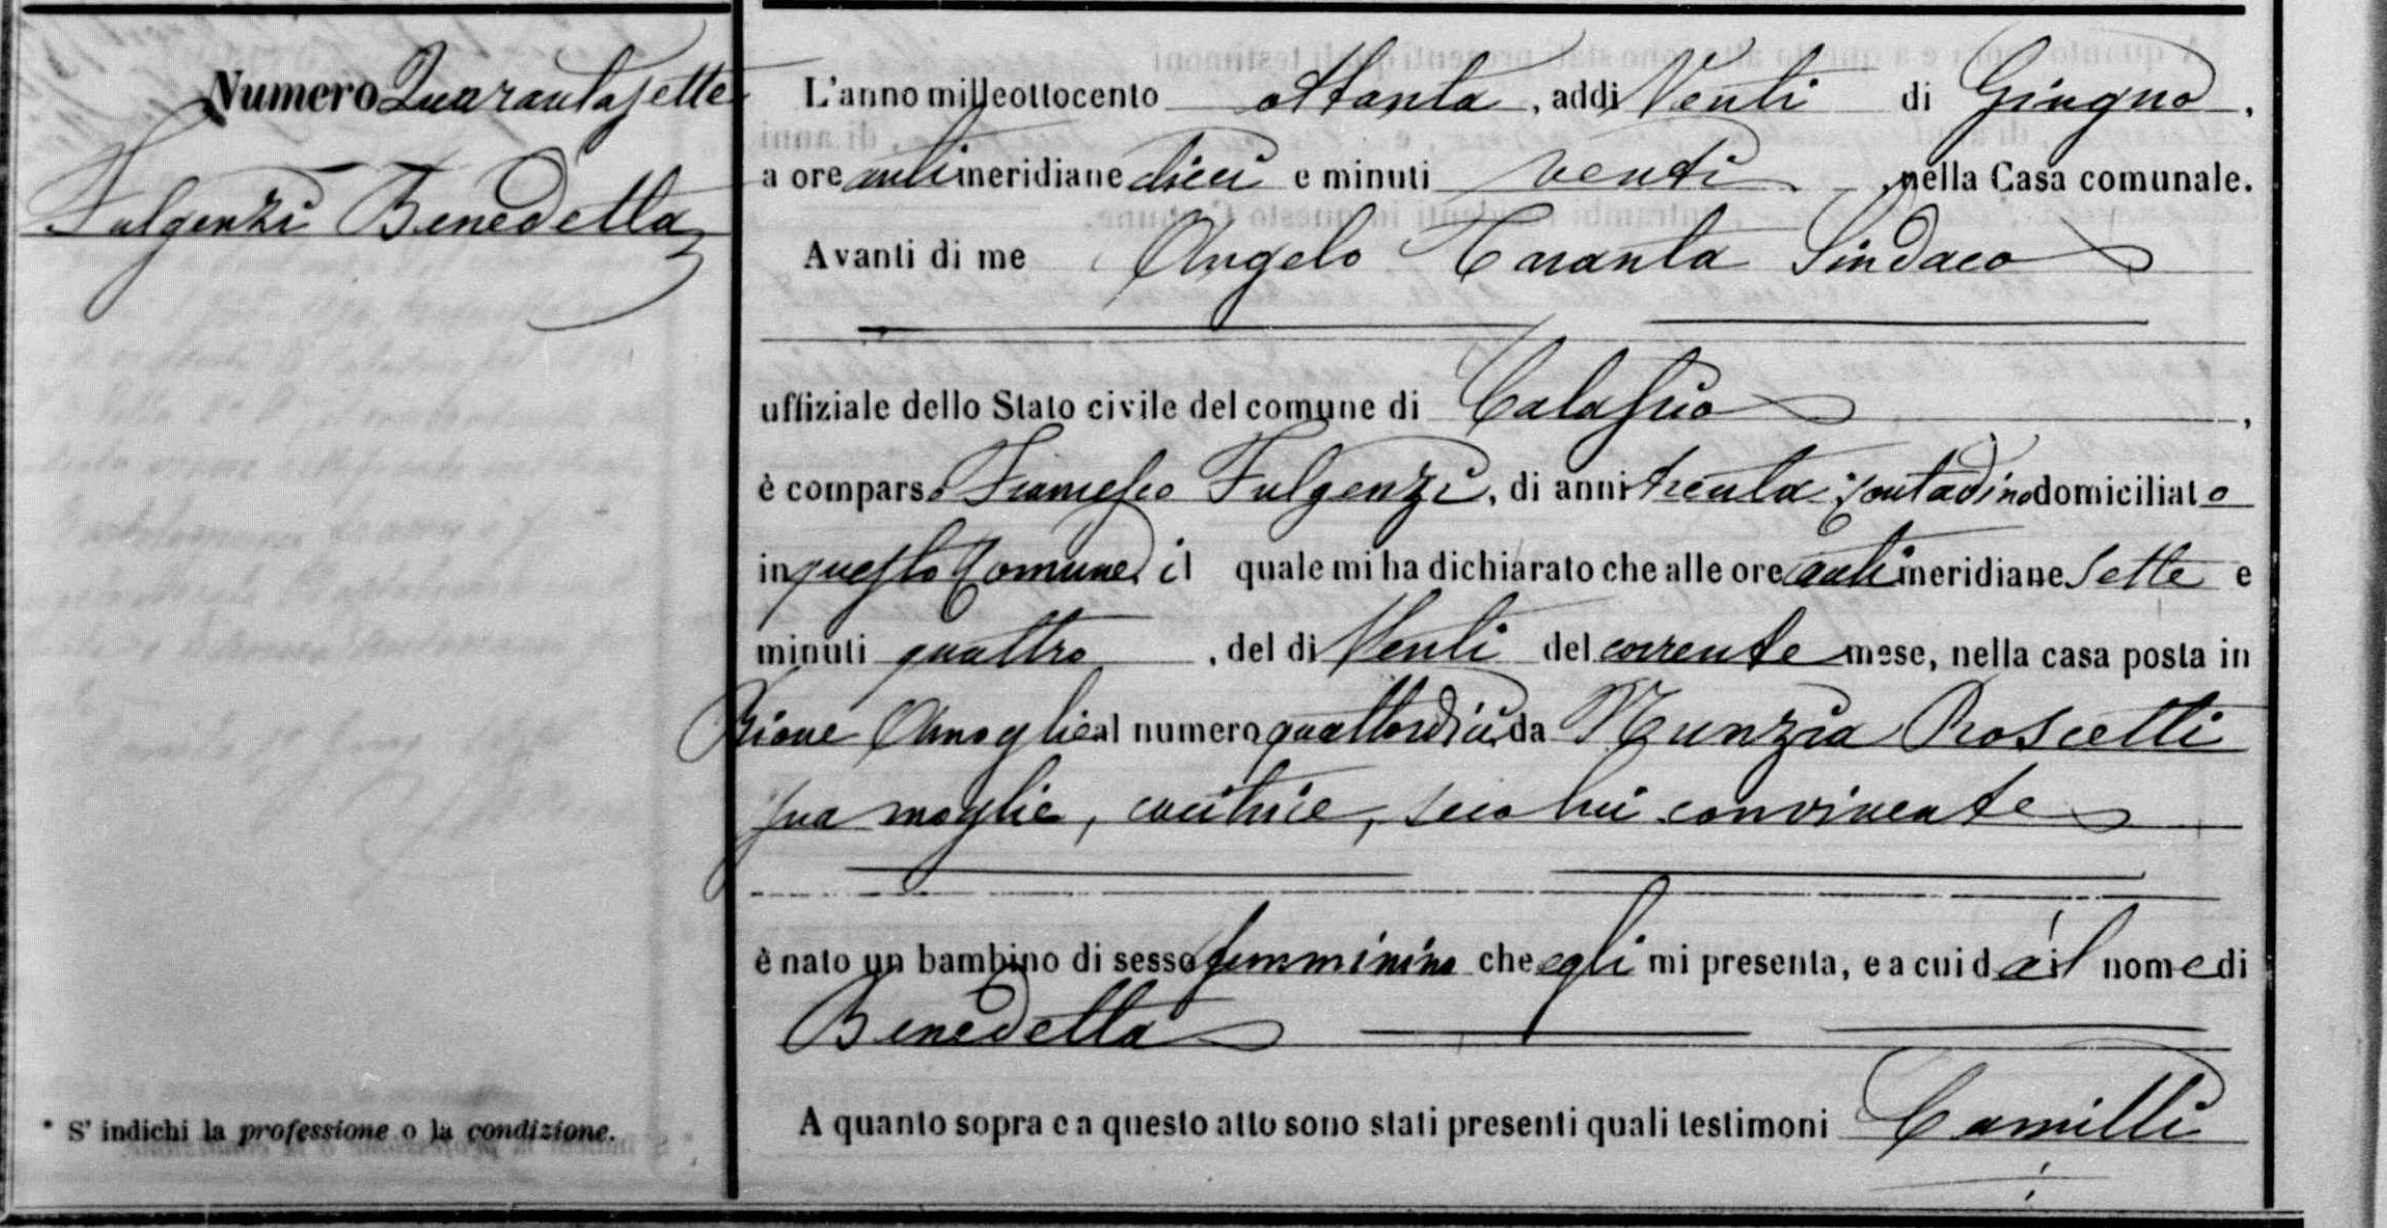 Numero Quarantasette
Fulgenzi Benedetta
* S' indichi la professione o la condizione.
L'anno milleottocento ottanta, addi Venti di Giugno,
a ore antimeridiane dieci e minuti venti, nella Casa comunale.
Avanti di me Angelo Taranta Sindaco
uffiziale dello Stato civile del comune di Calascio,
è comparso Francesco Fulgenzi, di anni trenta contadino domiciliato
in questo Comune, il quale mi ha dichiarato che alle ore antimeridiane Sette e
minuti quattro, del di Venti del corrente mese, nella casa posta in
Rione al numero quattordici, da Nunzia Roscetti
sua moglie, cucitrice, seco lui convivente
è nato un bambino di sesso femminino che egli mi presenta, e a cui dà il nome di
Benedetta
A quanto sopra e a questo atto sono stati presenti quali testimoni Camilli